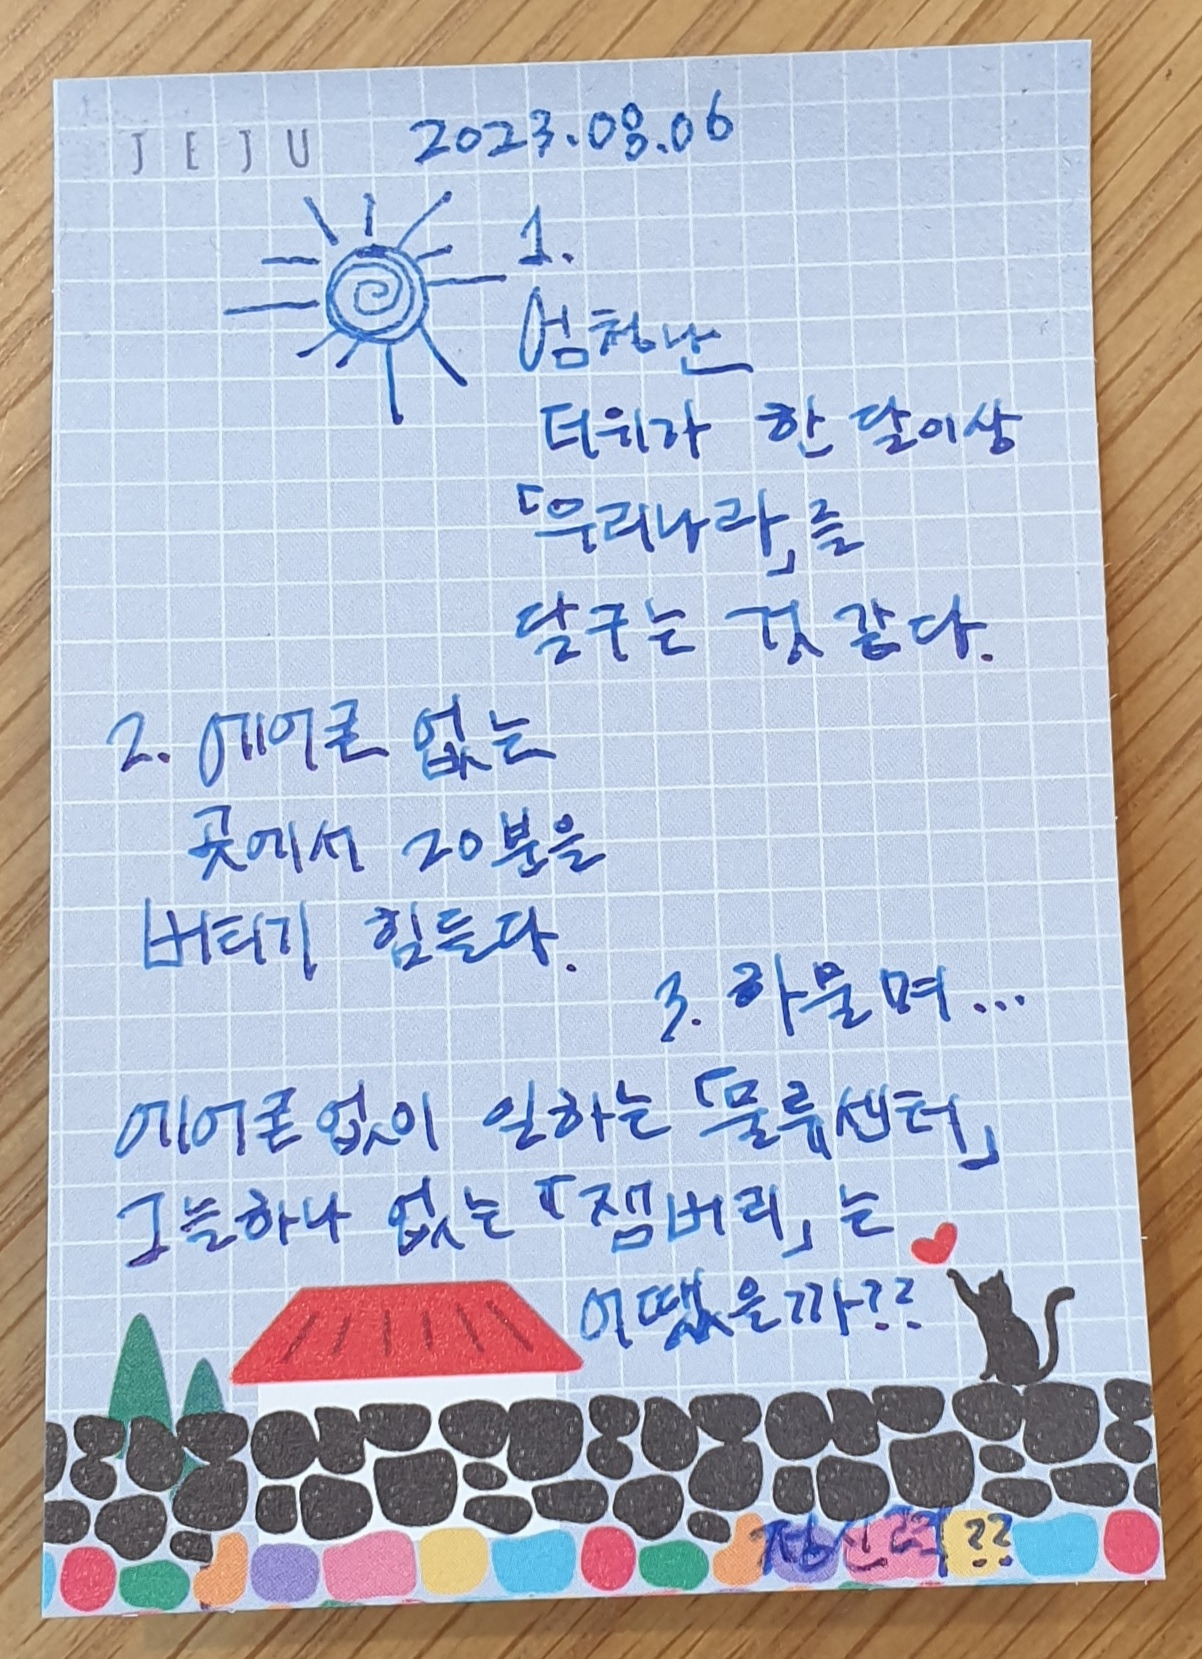 JEJU 2023.08.06
1.
엄청난
더위가 한 달이상
「우리나라」를
달구는 것 같다.
2. 에어콘 없는
곳에서 20분을
버티기 힘든다.
3. 하물며...
에어콘 없이 일하는 「물류센터」
그늘하나 없는 「잼버리」는
어땠을까??
정신력??